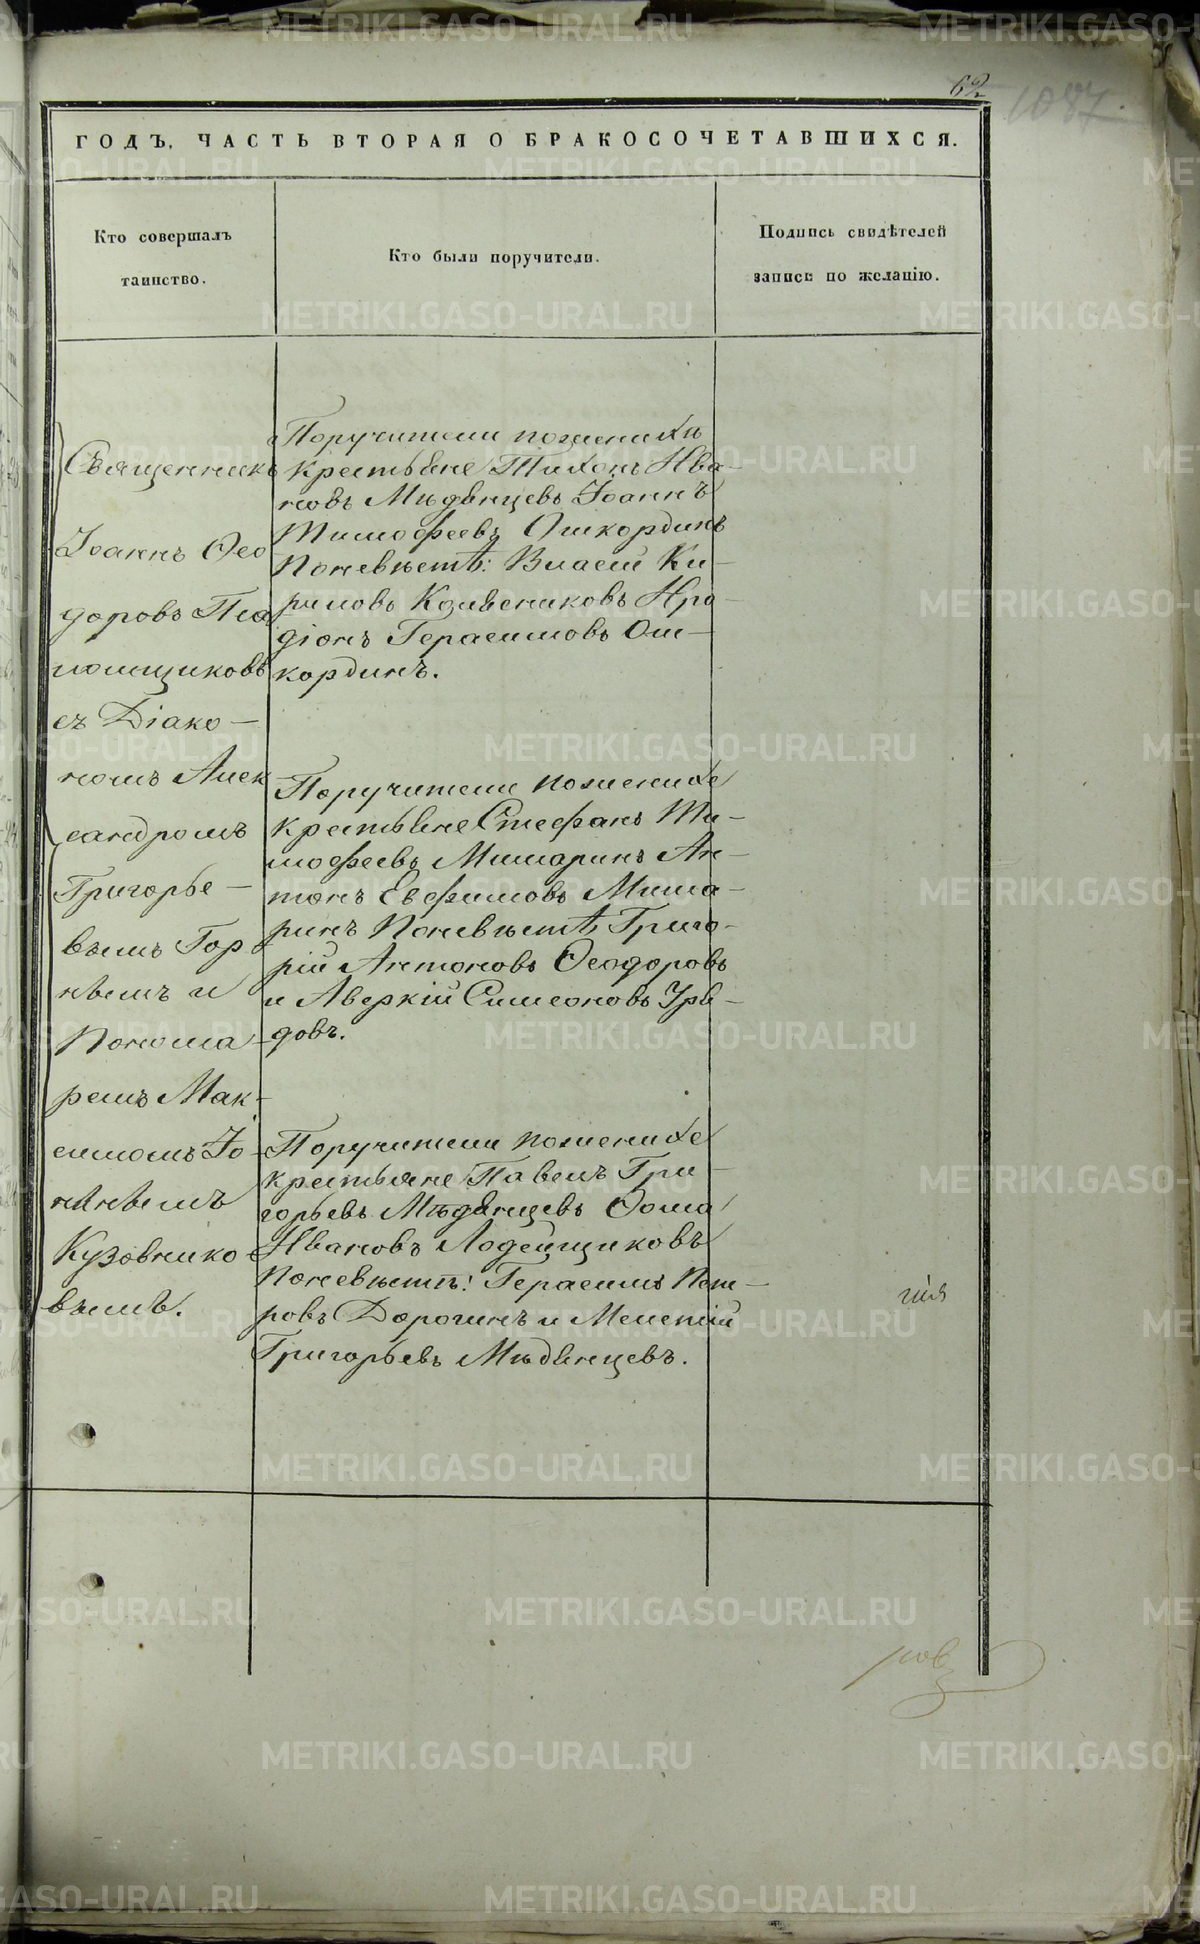 62
1087.
ГОДЪ, ЧАСТЬ ВТОРАЯ О БРАКОСОЧЕТАВШИХСЯ.
Кто совершалъ
таинство.
Кто были поручители.
Подпись свидѣтелей
записи по желанію.
Священникъ
Іоаннъ Ѳео
доровъ
съ Діако-
номъ Алек
сандромъ
Григорье-
вымъ Гор
нымъ и
Понома-
ремъ Мак-
симомъ Іо-
Кузовнико
вымъ.
Поручители пожених
крестьяне Тихонъ Ива-
новъ Мѣдянцевъ Іоаннъ
Тимофеевъ Ошкординъ
Поневѣстѣ: Власій Ки-
риловъ Колясниковъ Иро-
діонъ Герасимовъ Ош-
кординъ.
Поручители поженихе
крестьяне Стефанъ Ти-
мофеевъ Мишаринъ Ан-
тонъ Евфимовъ Миша-
ринъ Поневѣстѣ Григо-
рій Антоновъ Ѳеодоровъ
и Аверкій Симеоновъ Уря-
довъ.
Поручители поженихе
крестьяне Павелъ Гри-
горьевъ Мѣдянцевъ Ѳома
Ивановъ Лодейщиковъ
Поневѣстѣ: Герасимъ Пет-
ровъ Дорогинъ и Мелетій
Григорьевъ Мѣдянцевъ.
METRIKI.GASO-URAL.RU